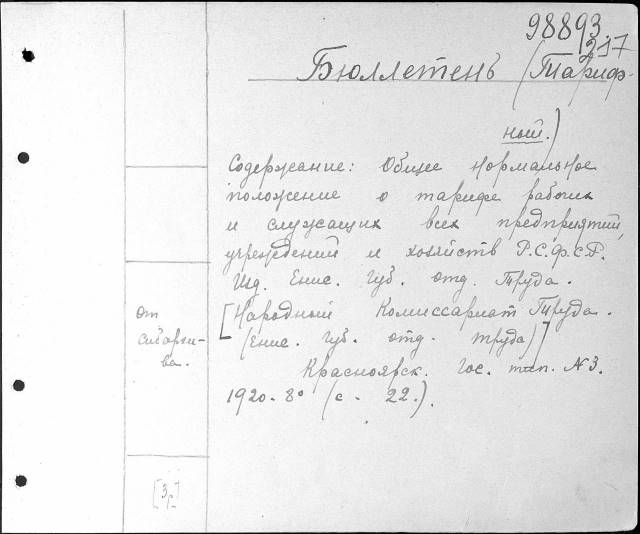 98893
217
Бюллетень (Тариф-
ный.)
Содержание: Общее нормальное
положение о тарифе рабочих
и служащих всех предприятий,
учреждений и хозяйств Р.С.Ф.С.Р.
Изд. Енис. Губ. отд. Труда.
[Народный Комиссариат Труда.
(Енис. губ. отд. труда)]
Красноярск. Гос. тип. №3.
1920. 8° (с. 22.).
От
сибархи-
ва.